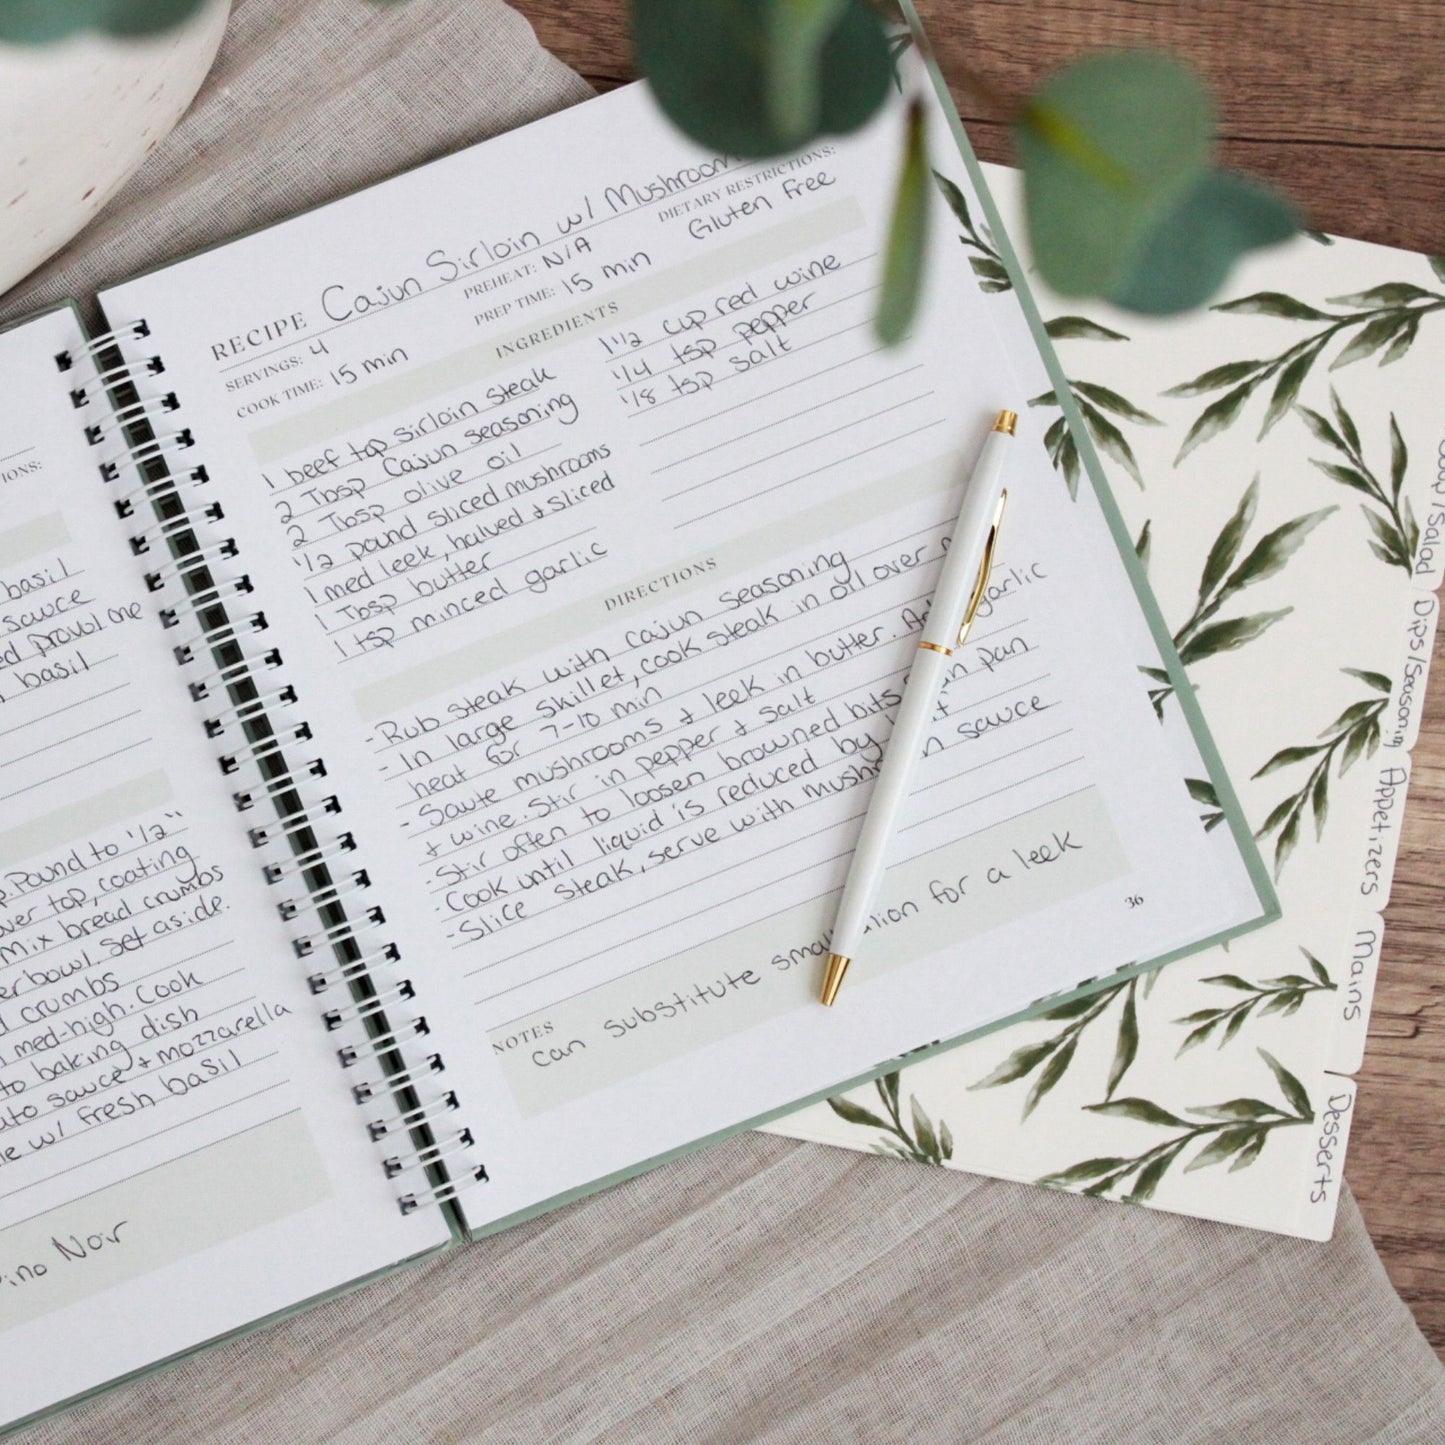 IONS:
basil
sauce
ed provolone
basil
Pound to 1/2"
over top, coating
mix bread crumbs
er bowl. Set aside.
crumbs
med-high. Cook
to baking dish
sauce & mozzarella
w/ fresh basil
Noir
RECIPE Cajun Sirloin w/ Mushroom
SERVINGS: 4
PREHEAT: N/A
DIETARY RESTRICTIONS:
COOK TIME: 15 min
PREP TIME: 15 min
Gluten Free
INGREDIENTS
1 beef top sirloin steak
2 Tbsp Cajun seasoning
2 Tbsp olive oil
1/2 pound sliced mushrooms
1 med leek, halved & sliced
1 Tbsp butter
1 tsp minced garlic
1 1/2 cup red wine
1/4 tsp pepper
1/8 tsp salt
DIRECTIONS
- Rub steak with cajun seasoning
- In large skillet, cook steak in oil over
heat for 7-10 min
- Saute mushrooms & leek in butter. Add garlic
& wine. Stir in pepper & salt
- Stir often to loosen browned bits pan
- Cook until liquid is reduced by
- Slice steak, serve with mushroom sauce
NOTES
Can substitute small onion for a leek
36
Soup/Salad
Dips/Seasoning
Appetizers
Mains
Desserts